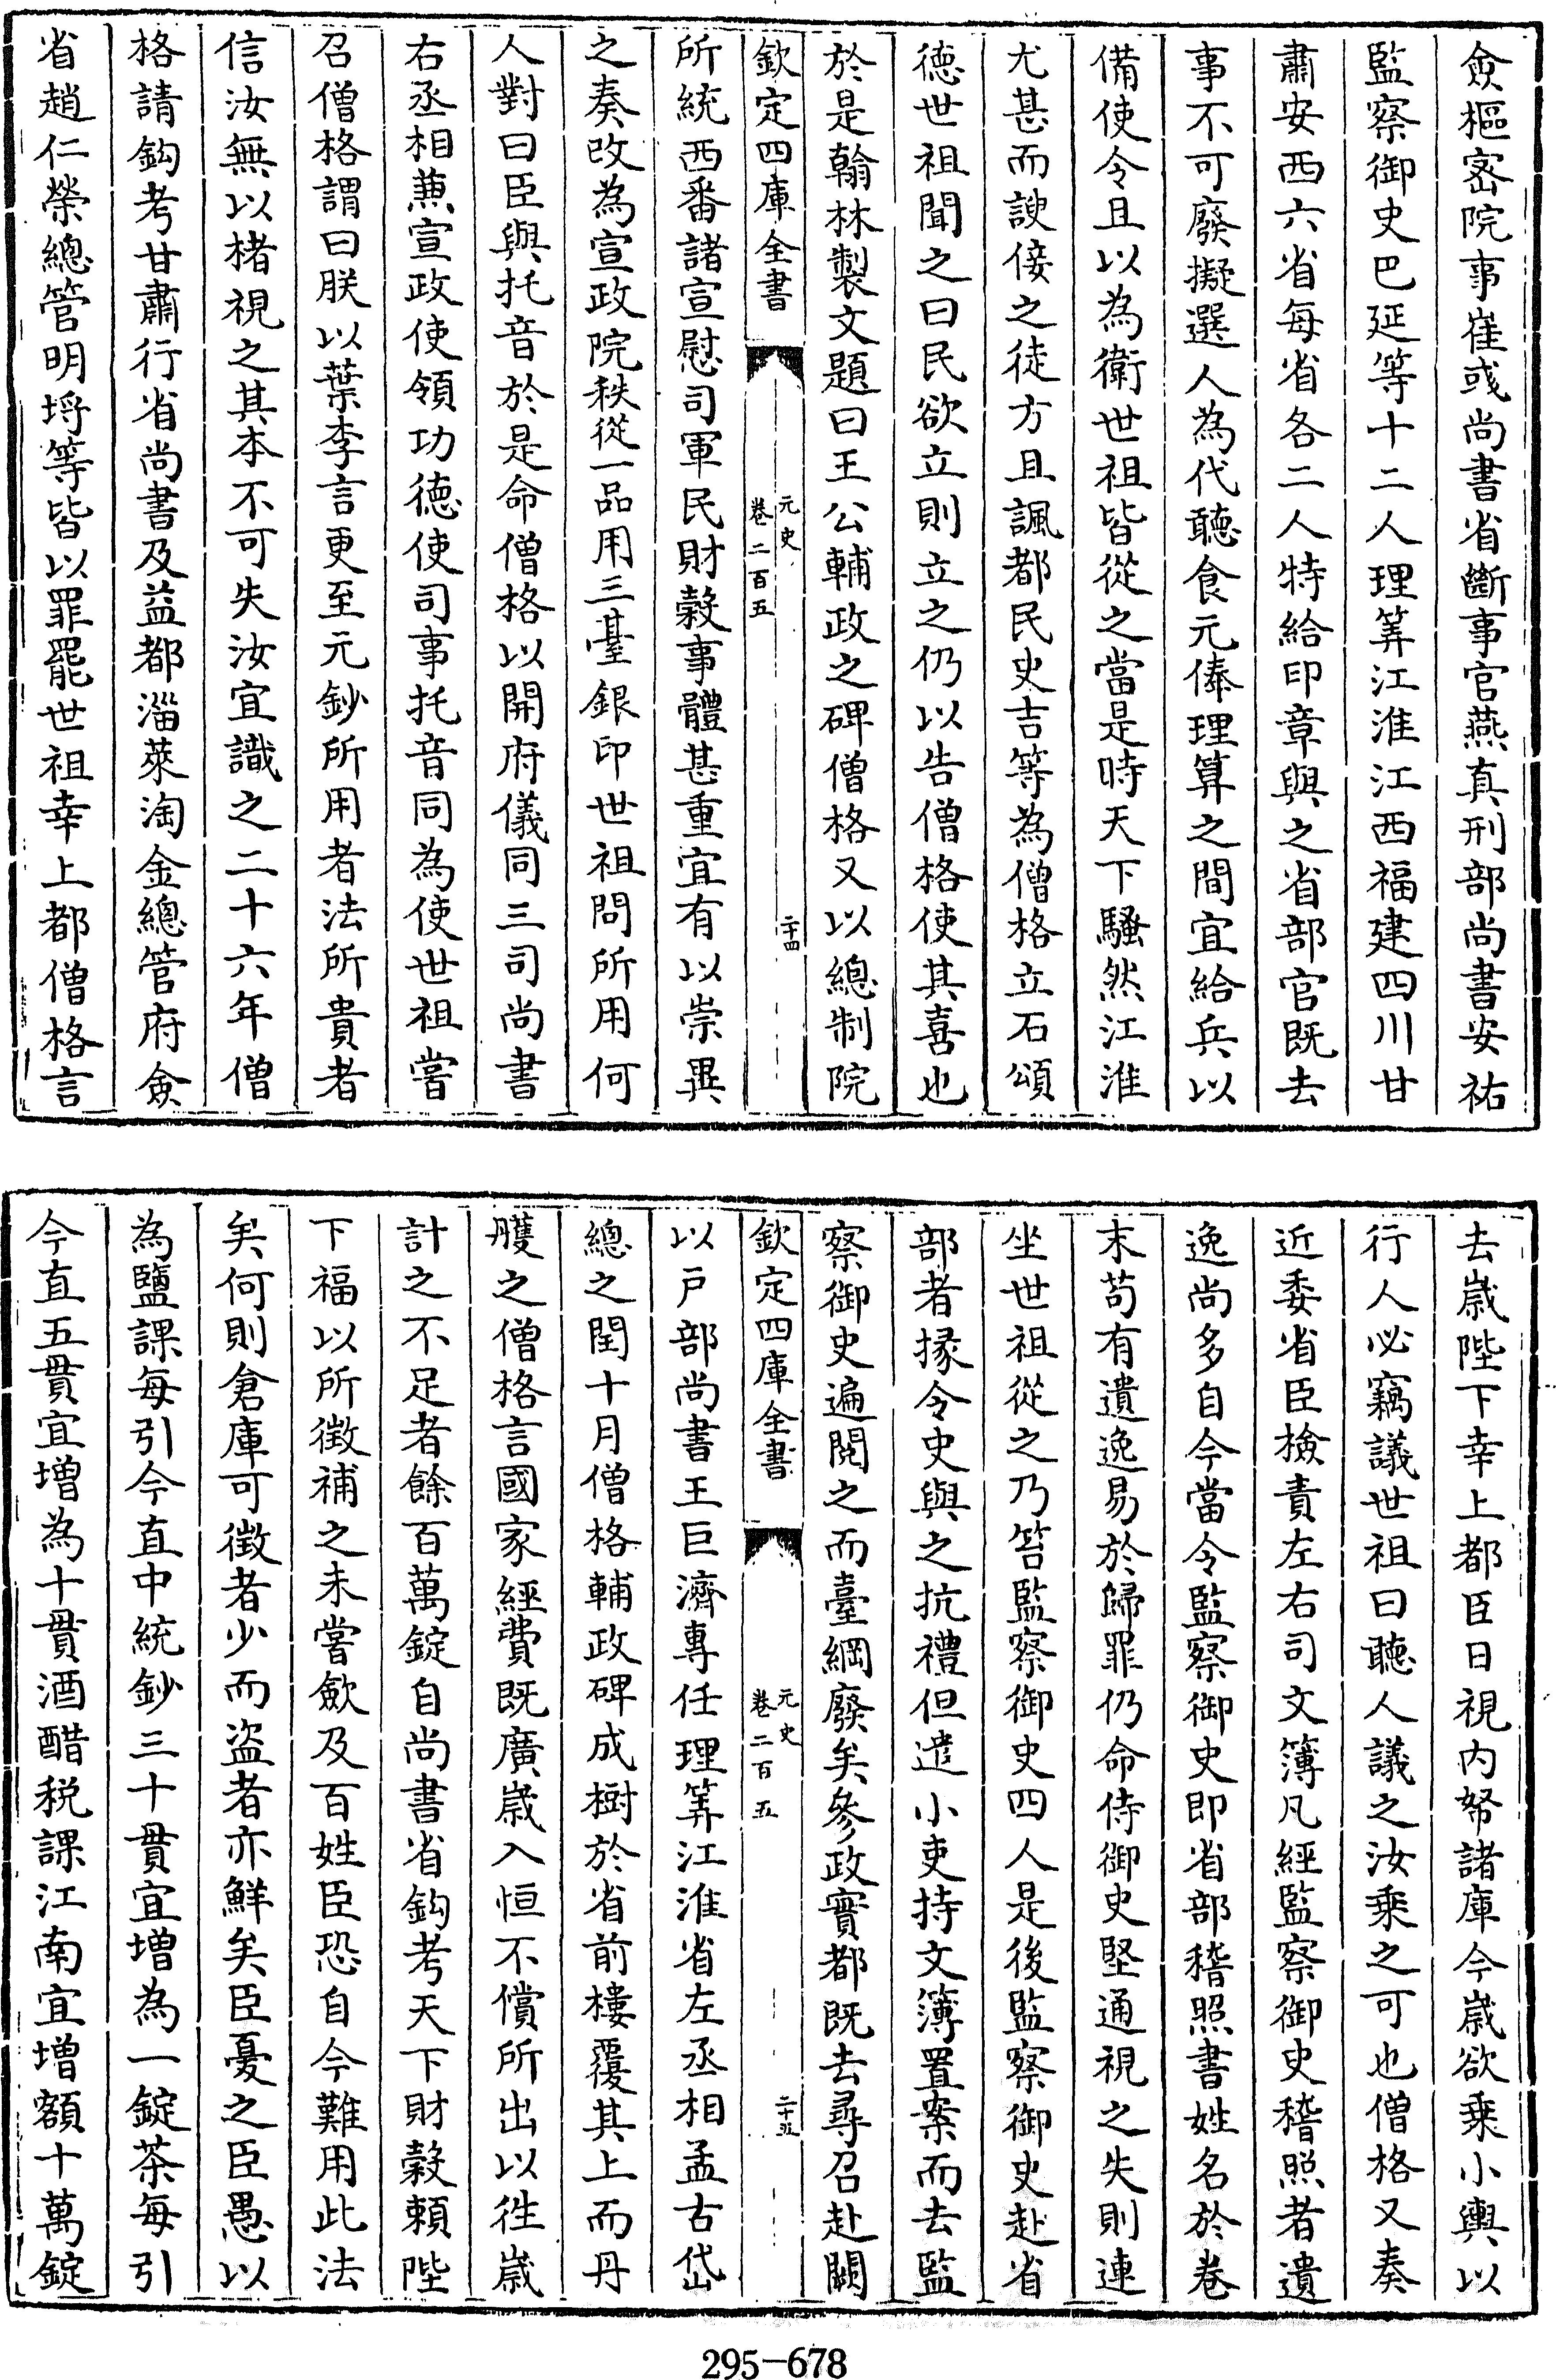 僉樞密院事崔彧尚書省斷事官燕真刑部尚書安祐
監察御史巴延等十二人理筭江淮江西福建四川甘
肅安西六省每省各二人特給印章與之省部官既去
事不可廢擬選人為代聽食元俸理算之間宜給兵以
備使令且以為衛世祖皆從之當是時天下騷然江淮
尤甚而諛佞之徒方且諷都民史吉等為僧格立石頌
徳世祖聞之曰民欲立則立之仍以告僧格使其喜也
於是翰林製文題曰王公輔政之碑僧格又以總制院
欽定四庫全書
元史
卷二百五
二十四
所統西番諸宣慰司軍民財穀事體甚重宜有以崇異
之奏改為宣政院秩從一品用三臺銀印世祖問所用何
人對曰臣與托音於是命僧格以開府儀同三司尚書
右丞相兼宣政使領功徳使司事托音同為使世祖嘗
召僧格謂曰朕以葉李言更至元鈔所用者法所貴者
信汝無以楮視之其本不可失汝宜識之二十六年僧
格請鈎考甘肅行省尚書及益都淄萊淘金總管府僉
省趙仁榮總管明埒等皆以罪罷世祖幸上都僧格言
去嵗陛下幸上都臣日視内帑諸庫今嵗欲乘小輿以
行人必竊議世祖曰聽人議之汝乘之可也僧格又奏
近委省臣檢責左右司文簿凡經監察御史稽照者遺
逸尚多自今當令監察御史即省部稽照書姓名於卷
末苟有遺逸易於歸罪仍命侍御史堅通視之失則連
坐世祖從之乃笞監察御史四人是後監察御史赴省
部者掾令史與之抗禮但遣小吏持文簿置案而去監
察御史遍閱之而臺綱廢矣參政實都既去尋召赴闕
欽定四庫全書
元史
卷二百五
二十五
以戸部尚書王巨濟專任理筭江淮省左丞相孟古岱
總之閏十月僧格輔政碑成樹於省前樓覆其上而丹
雘之僧格言國家經費既廣嵗入恒不償所出以徃嵗
計之不足者餘百萬錠自尚書省鈎考天下財穀賴陛
下福以所徴補之未嘗歛及百姓臣恐自今難用此法
矣何則倉庫可徴者少而盜者亦鮮矣臣憂之臣愚以
為鹽課每引今直中統鈔三十貫宜増為一錠茶每引
今直五貫宜増為十貫酒醋税課江南宜増額十萬錠
295-678